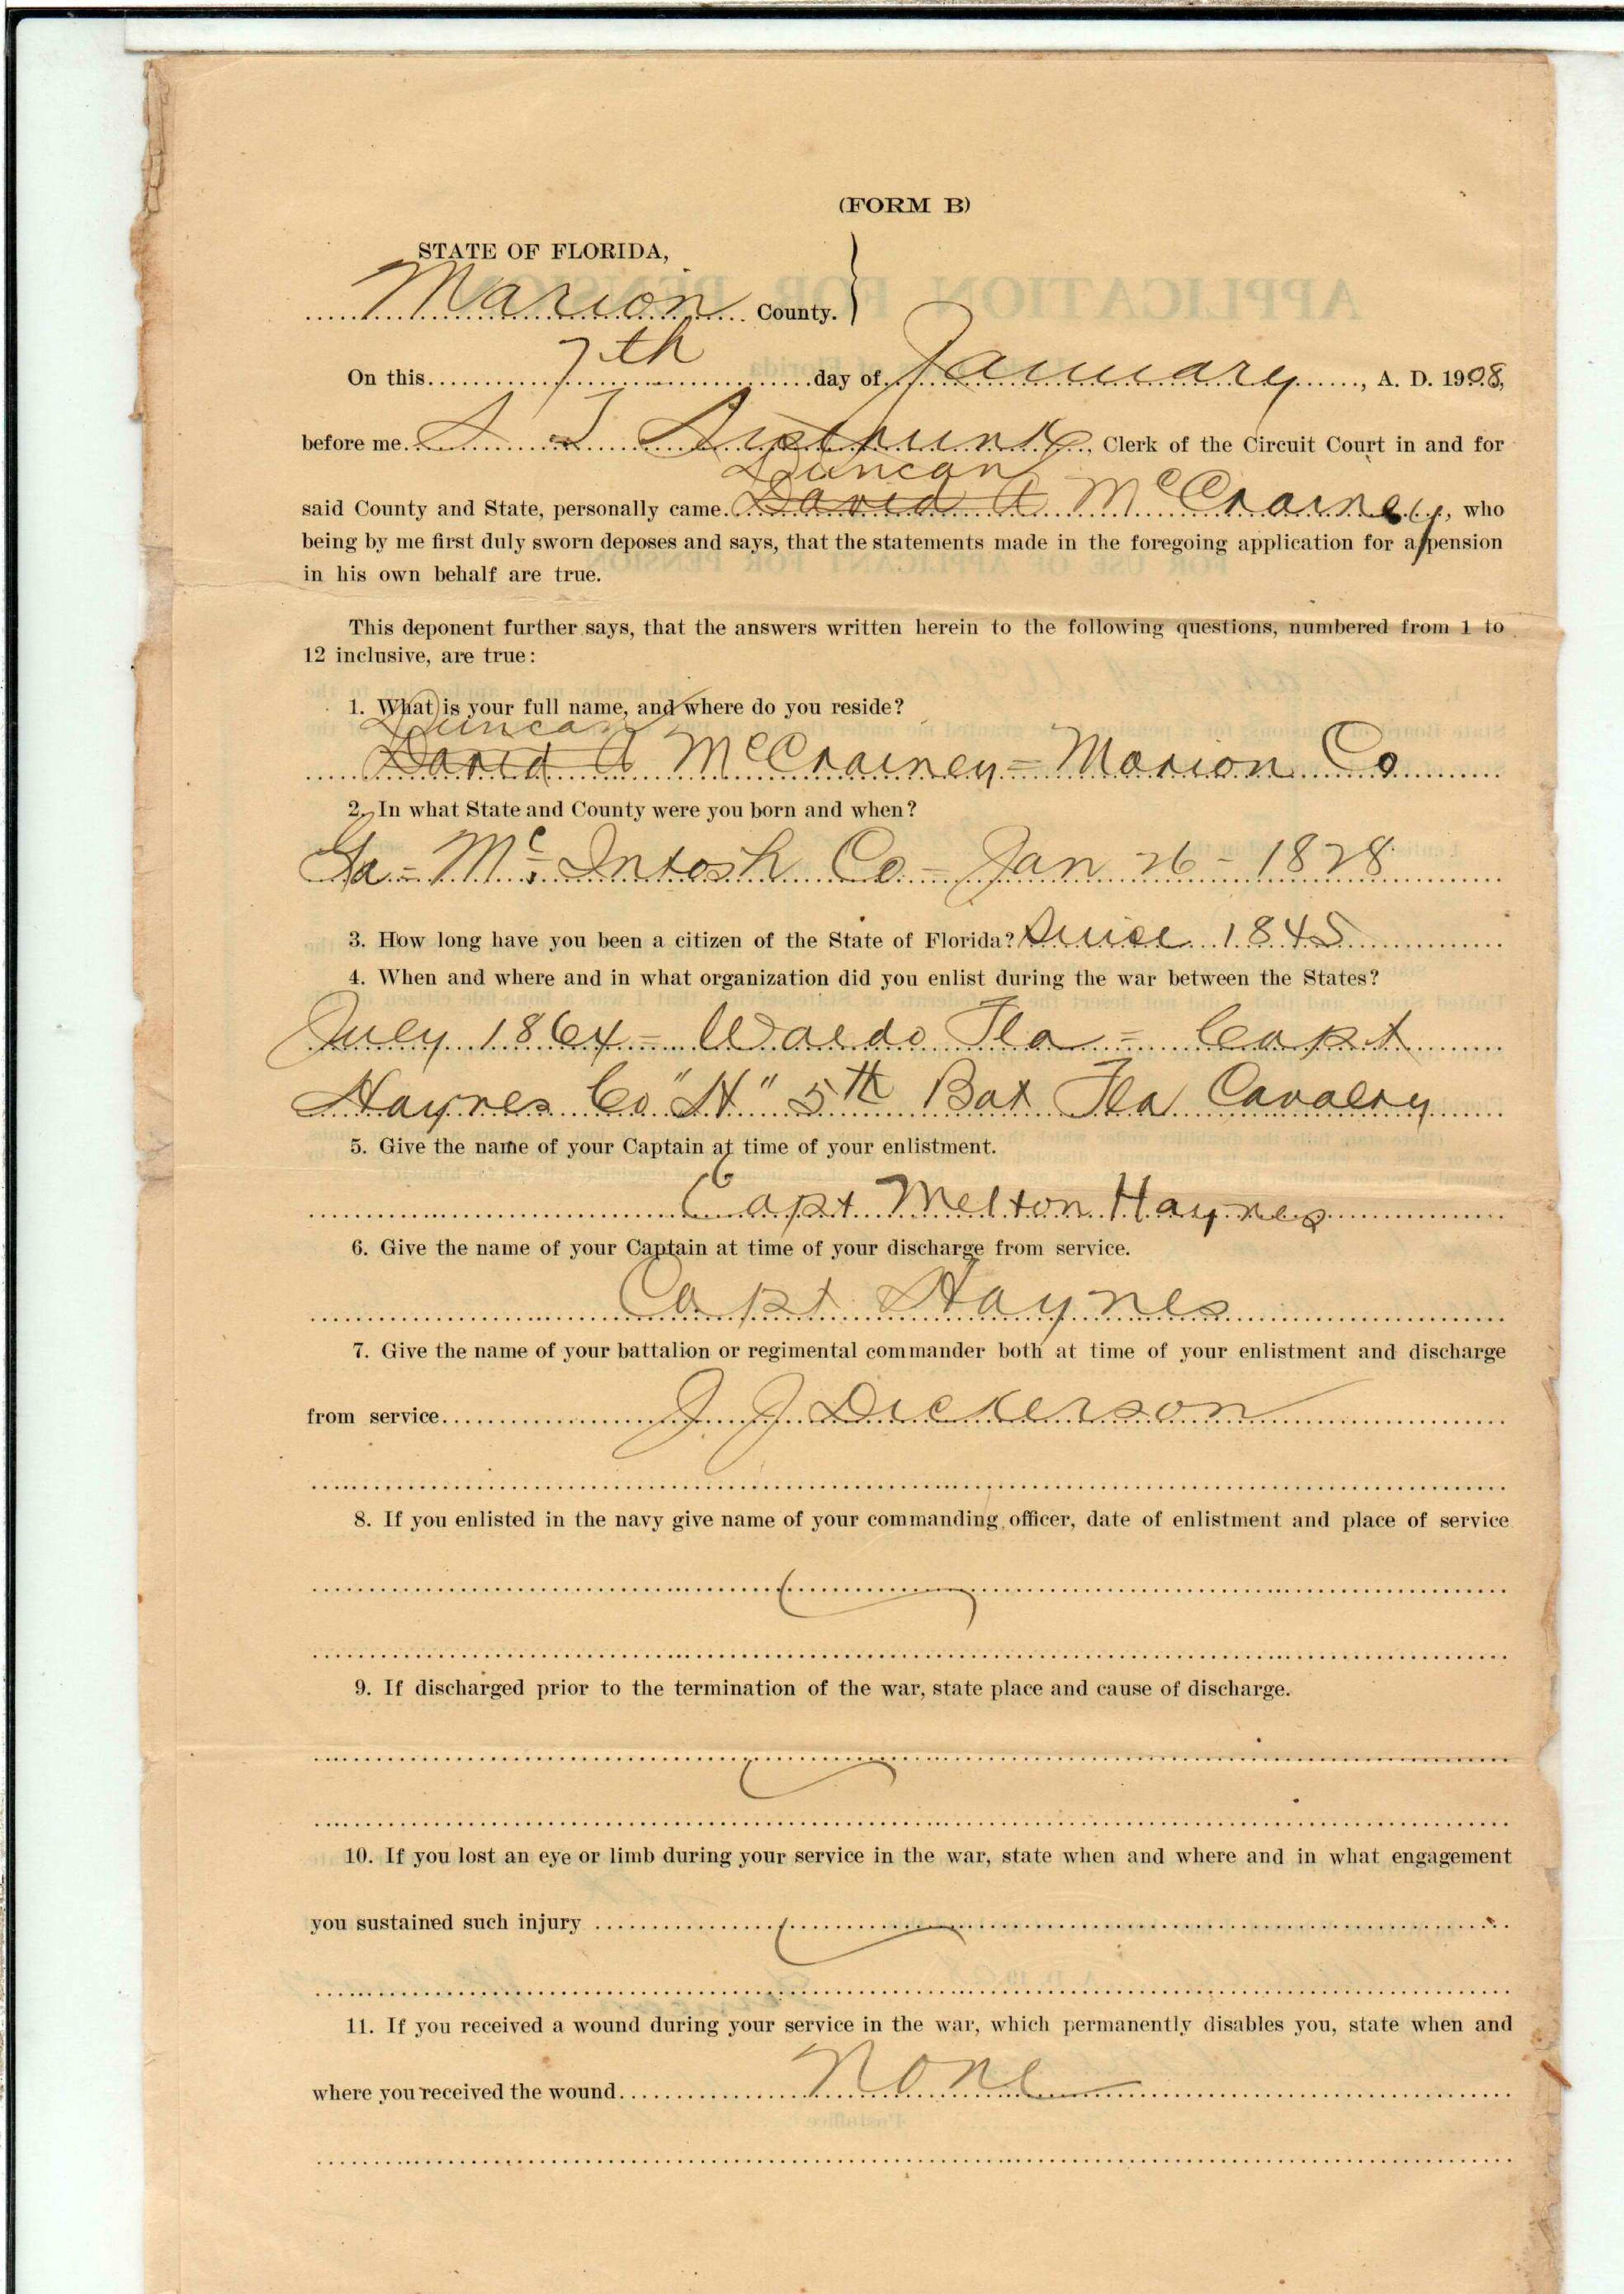 (FORM B)
STATE OF FLORIDA,
Marion County.
On this 7th day of January, A. D. 1908,
before me S T Sistrunk, Clerk of the Circuit Court in and for
Duncan
said County and State, personally came David A McCrainey, who
being by me first duly sworn deposes and says, that the statements made in the foregoing application for a pension
in his own behalf are true.
This deponent further says, that the answers written herein to the following questions, numbered from 1 to
12 inclusive, are true:
1. What is your full name, and where do you reside?
Duncan
David A McCrainey - Marion Co
2. In what State and County were you born and when?
Ga - Mc Intosh Co - Jan 26 - 1828
3. How long have you been a citizen of the State of Florida? Since 1845
4. When and where and in what organization did you enlist during the war between the States?
July 1864 - Waldo Fla - Capt
Haynes Co "H" 5th Bat Fla Cavalry
5. Give the name of your Captain at time of your enlistment.
Capt Melton Haynes
6. Give the name of your Captain at time of your discharge from service.
Capt Haynes
7. Give the name of your battalion or regimental commander both at time of your enlistment and discharge
from service J. J. Dickerson
8. If you enlisted in the navy give name of your commanding officer, date of enlistment and place of service
9. If discharged prior to the termination of the war, state place and cause of discharge.
10. If you lost an eye or limb during your service in the war, state when and where and in what engagement
you sustained such injury
11. If you received a wound during your service in the war, which permanently disables you, state when and
where you received the wound None